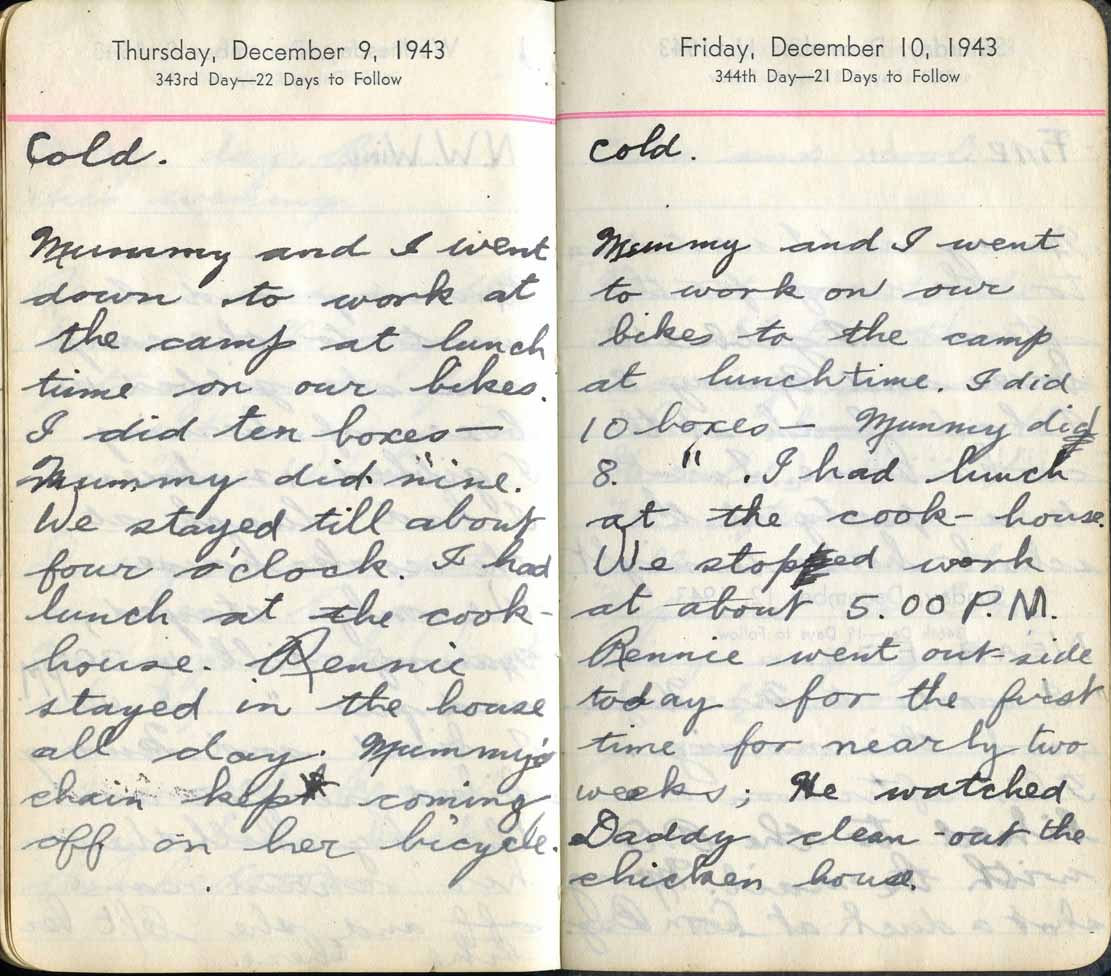 Thursday, December 9, 1943
343rd Day—22 Days to Follow
Cold.
Mummy and I went
down to work at
the camp at lunch
time on our bikes.
I did ten boxes—
Mummy did nine.
We stayed till about
four o'clock. I had
lunch at the cook-
house. Rennie
stayed in the house
all day. Mummy's
chain kept coming
off on her bicycle.
Friday, December 10, 1943
344th Day—21 Days to Follow
cold.
Mummy and I went
to work on our
bikes to the camp
at lunchtime. I did
10 boxes— Mummy did
8. " . I had lunch
at the cook-house.
We stopped work
at about 5.00 P.M.
Rennie went out-side
today for the first
time for nearly two
weeks; He watched
Daddy clean out the
chicken house.